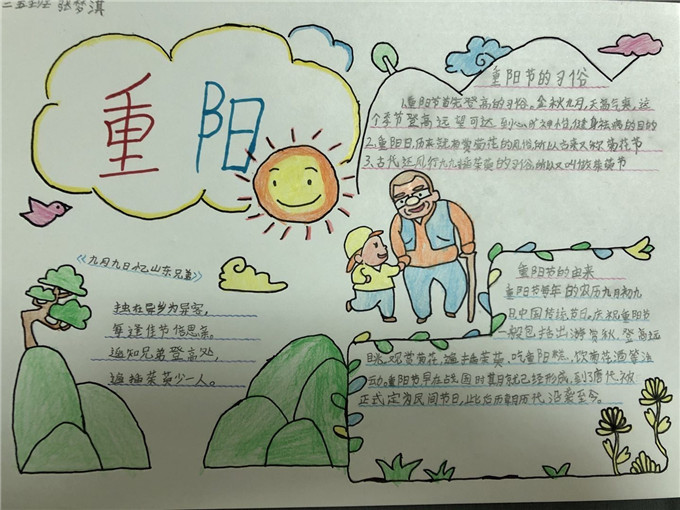 二五 张梦淇
重阳
重阳节的习俗
1.重阳节首先登高的习俗。金秋九月,天高气爽,这
个季节登高远望可达到心旷神怡,健身祛病的目的
2.重阳日,历来就有赏菊花的风俗,所以古来又称菊花节
3.古代还风行九九插茱萸的习俗,所以又叫做茱萸节
《九月九日忆山东兄弟》
独在异乡为异客,
每逢佳节倍思亲。
遥知兄弟登高处,
遍插茱萸少一人。
重阳节的由来
重阳节每年的农历九月初九
日中国传统节日。庆祝重阳节
一般包括出游赏秋、登高远
眺、观赏菊花、遍插茱萸、吃重阳糕、饮菊花酒等活
动。重阳节早在战国时期就已经形成,到了唐代被
正式定为民间节日,此后历朝历代沿袭至今。